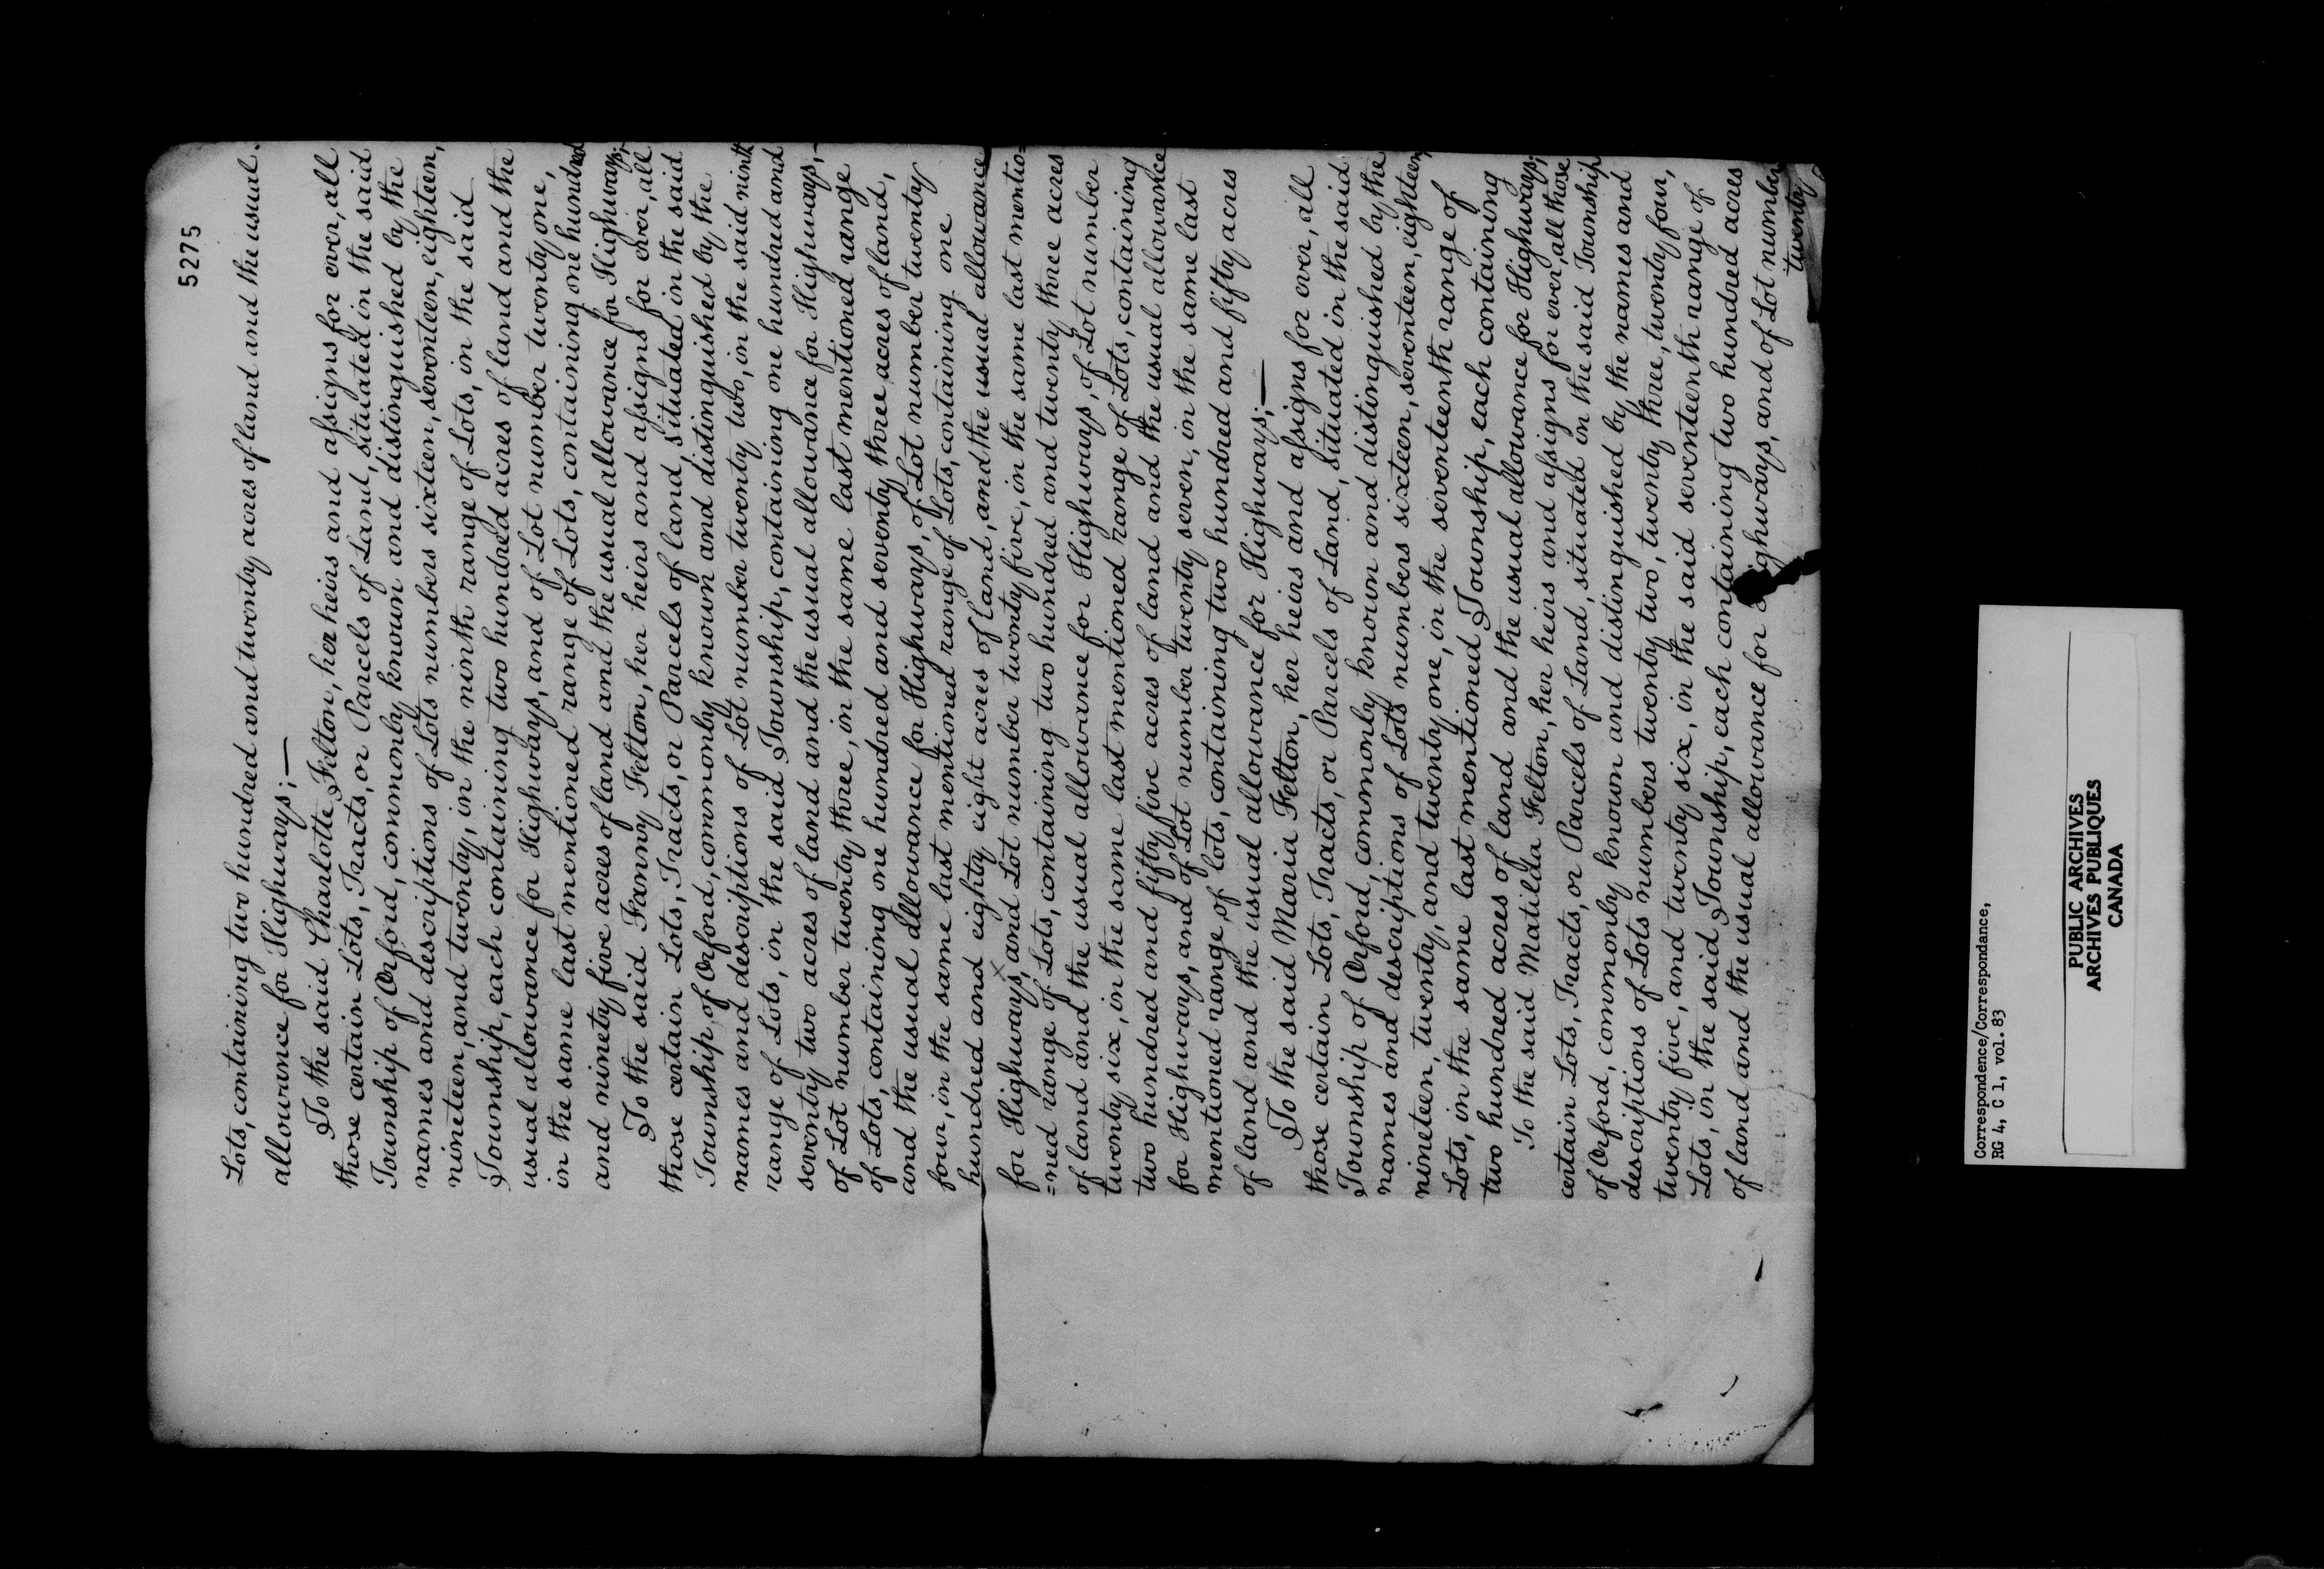 5275
Lots, containing two hundred and twenty acres of land and the usual
allowance for Highways;—
To the said Charlotte Felton, her heirs and assigns for ever, all
those certain Lots, Tracts, or Parcels of Land, situated in the said
Township of Orford, commonly known and distinguished by the
names and descriptions of Lots numbers sixteen, seventeen, eighteen,
nineteen, and twenty, in the ninth range of Lots, in the said
Township, each containing two hundred acres of land and the
usual allowance for Highways, and of Lot number twenty one,
in the same last mentioned range of Lots, containing one hundred
and ninety five acres of land and the usual allowance for Highways;
To the said Fanny Felton, her heirs and assigns for ever, all
those certain Lots, Tracts, or Parcels of land, situated in the said
Township of Orford, commonly known and distinguished by the
names and descriptions of Lot number twenty two, in the said ninth
range of Lots, in the said Township, containing one hundred and
seventy two acres of land and the usual allowance for Highways,—
of Lot number twenty three, in the same last mentioned range
of Lots, containing one hundred and seventy three acres of land,
and the usual allowance for Highways, of Lot number twenty
four, in the same last mentioned range of Lots, containing one
hundred and eighty eight acres of land, and the usual allowance
for Highways, and Lot number twenty five, in the same last mentio=
=ned range of Lots, containing two hundred and twenty three acres
of land and the usual allowance for Highways, of Lot number
twenty six, in the same last mentioned range of Lots, containing
two hundred and fifty five acres of land and the usual allowance
for Highways, and of Lot number twenty seven, in the same last
mentioned range of lots, containing two hundred and fifty acres
of land and the usual allowance for Highways;—
To the said Maria Felton, her heirs and assigns for ever, all
those certain Lots, Tracts, or Parcels of Land, situated in the said
Township of Orford, commonly known and distinguished by the
names and descriptions of Lots numbers sixteen, seventeen, eighteen,
nineteen, twenty, and twenty one, in the seventeenth range of
Lots, in the same last mentioned Township, each containing
two hundred acres of land and the usual allowance for Highways;
To the said Matilda Felton, her heirs and assigns for ever, all those
certain Lots, Tracts, or Parcels of Land, situated in the said Township
of Orford, commonly known and distinguished by the names and
descriptions of Lots numbers twenty two, twenty three, twenty four,
twenty five, and twenty six, in the said seventeenth range of
Lots, in the said Township, each containing two hundred acres
of land and the usual allowance for Highways, and of Lot number
twenty
Correspondence/Correspondance,
RG 4, C 1, vol. 83
PUBLIC ARCHIVES
ARCHIVES PUBLIQUES
CANADA